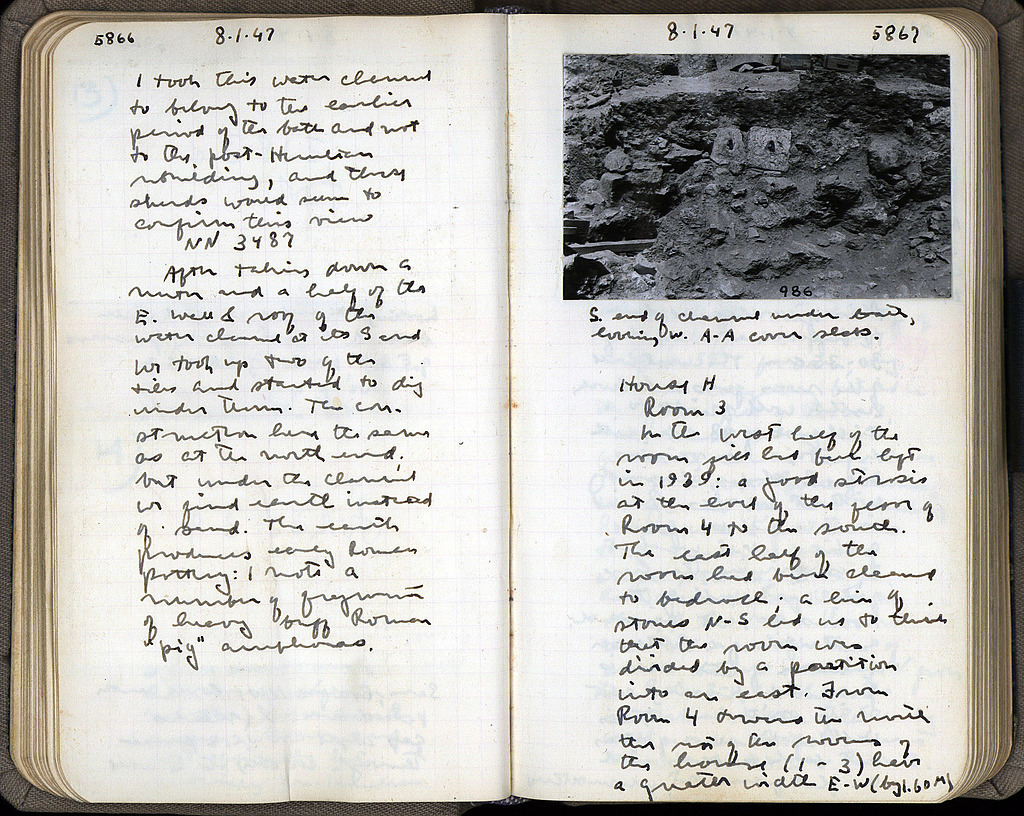 5866
8.1.47
I took this water channel
to belong to the earlier
period of the bath and not
to the post-Herulian
rebuilding, and these
sherds would seem to
confirm this view
NN 3487
After taking down a
meter and a half of the
E. wall & roof of the
water channel at its S end
we took up two of the
tiles and started to dig
under them. The con-
struction here the same
as at the north end,
but under the channel
we find earth instead
of sand. The earth
produces early Roman
pottery: I note a
number of fragments
of heavy buff Roman
"pig" amphoras.
8.1.47
5867
986
S. end of channel under bath,
looking W. A-A cover slabs.
House H
Room 3
In the west half of the
room had been left
in 1939: a good strosis
at the level of the floor of
Room 4 to the south.
The east half of the
room had been cleared
to bedrock; a line of
stones N-S led us to think
that the room was
divided by a partition
into an east. From
Room 4 towards the north
the rooms of
the house (1-3) have
a greater width E-W (by 1.60 M)